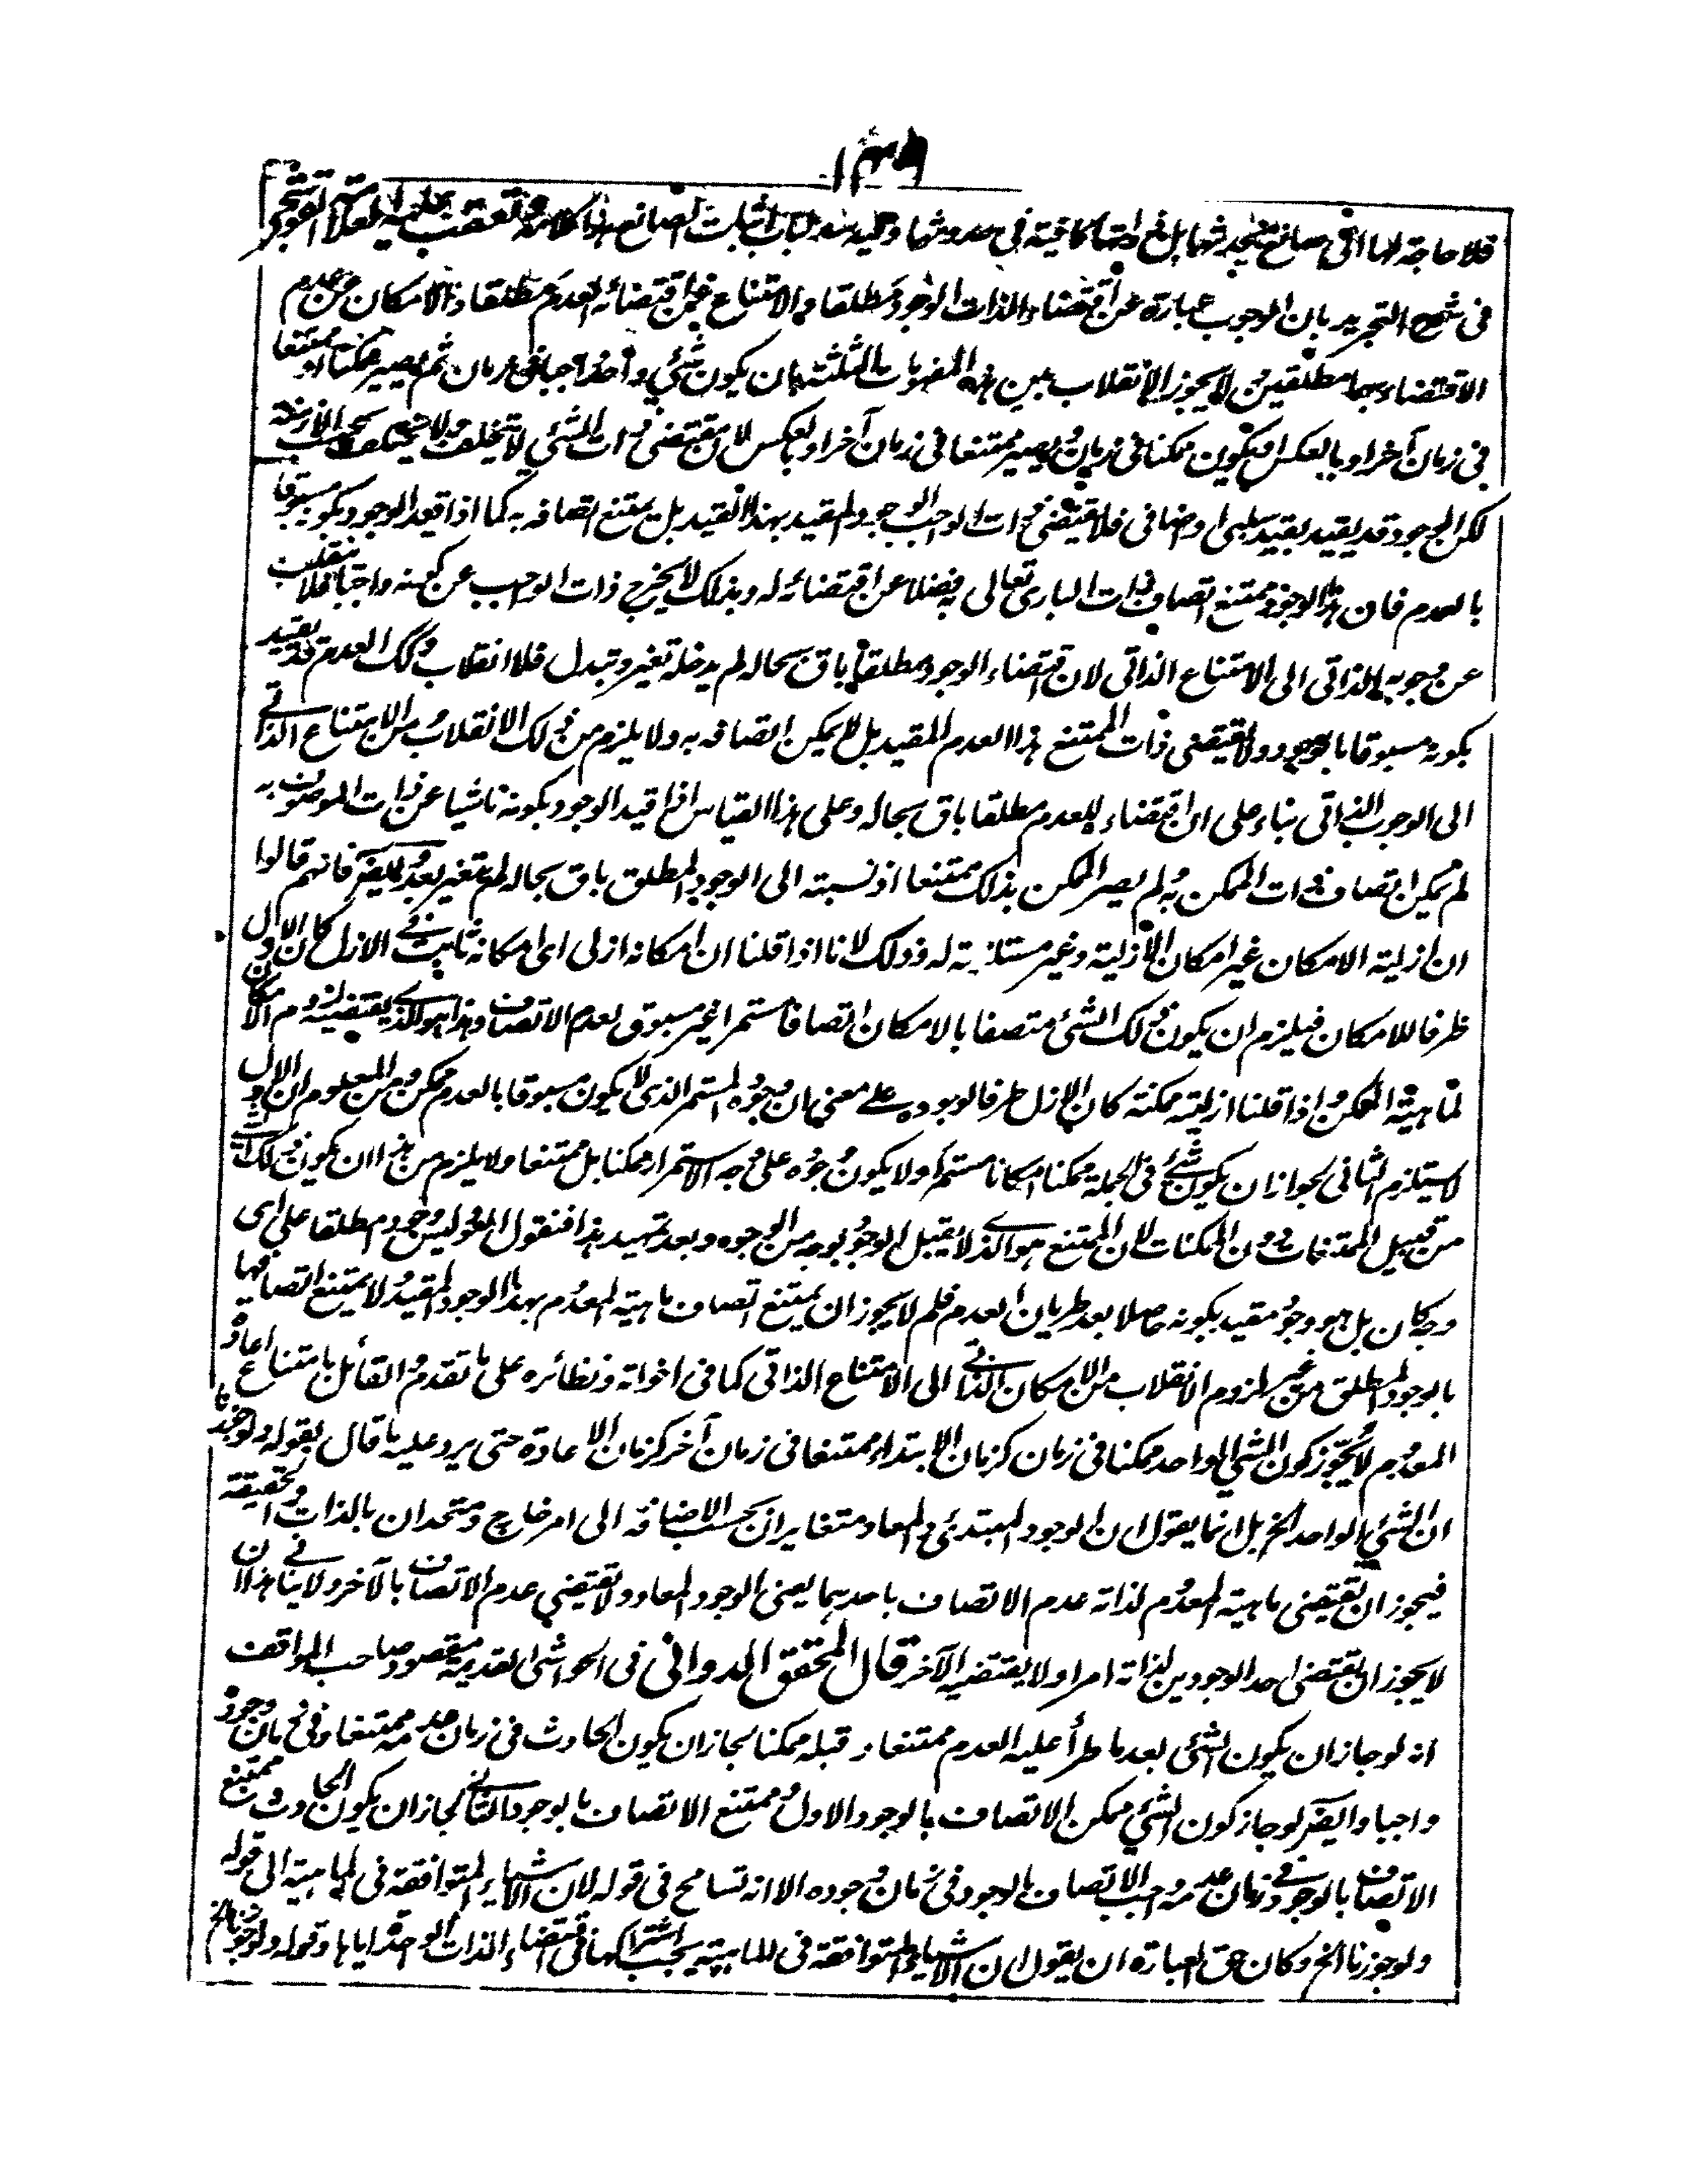 ١٣٩
فلا حاجة لها الى صانع يحدثها بل ذواتها كافية في حدوثها وفيه سد لباب اثبات الصانع هذا كلامه وتعقب عليه العلامة القوشجي
في شرح التجريد بان الوجوب عبارة عن اقتضاء الذات الوجود مطلقا والامتناع عن اقتضائه العدم مطلقا والامكان عن عدم
الاقتضاء بهما مطلقين لا يجوز الانقلاب بين هذه المفهومات الثلثة بان يكون شئ واحد واجبا في زمان ثم يصير ممكنا او ممتنعا
في زمان آخر او بالعكس او يكون ممكنا في زمان ويصير ممتنعا في زمان آخر او بالعكس لان مقتضى ذات الشئ لا يتخلف ولا يختلف بحسب الازمنة
لكن الوجود قد يقيد بقيد سلبي او اضافي فلا يقتضي ذات الواجب الوجود المقيد بهذا القيد بل يمتنع اتصافه به كما اذا قيد الوجود بكونه مسبوقا
بالعدم فان هذا الوجود ممتنع اتصاف ذات الباري تعالى به فضلا عن اقتضائه له وبذلك لا يخرج ذات الواجب عن كونه واجبا فلا ينقلب
عن وجوبه الذاتي الى الامتناع الذاتي لان اقتضاء الوجود مطلقا باق بحاله لم يدخله تغير وتبدل فلا انقلاب وكذلك العدم قد يقيد
بكونه مسبوقا بالوجود ولا يقتضي ذات الممتنع هذا العدم المقيد بل لا يمكن اتصافه به ولا يلزم من ذلك الانقلاب من الامتناع الذاتي
الى الوجوب الذاتي بناء على ان اقتضاء العدم مطلقا باق بحاله وعلى هذا القياس اذا قيد الوجود بكونه ناشيا عن ذات الموصوف به
لم يمكن اتصاف ذات الممكن به ولم يصر الممكن بذلك ممتنعا اذ نسبته الى الوجود المطلق باق بحاله لم يتغير بعد وايضا فانهم قالوا
ان ازلية الامكان غير امكان الازلية وغير مستلزمة له وذلك لانا اذا قلنا ان امكانه ازلي اى امكانه ثابت في الازل كان الازل
ظرفا للامكان فيلزم ان يكون ذلك الشئ متصفا بالامكان اتصافا مستمرا غير مسبوق بعدم الاتصاف وهذا هو الذي يقتضيه لزوم الامكان
لماهية الممكن واذا قلنا ازليته ممكنة كان الازل ظرفا لوجوده على معنى ان وجوده المستمر الذي لا يكون مسبوقا بالعدم ممكن ومن المعلوم ان الاول
لا يستلزم الثاني لجواز ان يكون شئ في الجملة ممكنا امكانا مستمرا ولا يكون وجوده على وجه الاستمرار ممكنا بل ممتنعا ولا يلزم من هذا ان يكون ذلك الشئ
من قبيل الممتنعات دون الممكنات لان الممتنع هو الذي لا يقبل الوجود بوجه من الوجوه وبعد تمهيد هذا فنقول العود ليس وجودا مطلقا على اى
وجه كان بل هو وجود مقيد بكونه حاصلا بعد طريان العدم فلم لا يجوز ان يمتنع اتصاف ماهية المعدوم بهذا الوجود المقيد ولا يمتنع اتصافها
بالوجود المطلق من غير لزوم الانقلاب من الامكان الذاتي الى الامتناع الذاتي كما في اخواته ونظائره على ما تقدم القائل بامتناع اعادة
المعدوم لا يجوز كون الشئ الواحد ممكنا في زمان كزمان الابتداء ممتنعا في زمان آخر كزمان الاعادة حتى يرد عليه ما قال بقوله ولو جوزنا
ان الشئ الواحد الخ بل انما يقول ان الوجود المبتدئ والمعاد متغايران بحسب الاضافة الى امر خارج ومتحدان بالذات والحقيقة
فيجوز ان يقتضي ماهية المعدوم لذاته عدم الاتصاف باحدهما يعني الوجود المعاد ولا يقتضي عدم الاتصاف بالآخر ولا ينافي هذا ان
لا يجوز ان يقتضي احد الوجودين لذاته امرا ولا يقتضيه الآخر قال المحقق الدواني في الحواشي القديمة مقصود صاحب المواقف
انه لو جاز ان يكون الشئ بعد ما طرأ عليه العدم ممتنعا و قبله ممكنا لجاز ان يكون الحادث في زمان عدمه ممتنعا وفي زمان وجوده
واجبا وايضا لو جاز كون الشئ ممكن الاتصاف بالوجود الاول وممتنع الاتصاف بالوجود الثاني لجاز ان يكون الحادث ممتنع
الاتصاف بالوجود في زمان عدمه وواجب الاتصاف بالوجود في زمان وجوده الا انه تسامح في قوله لان الاشياء المتوافقة في الماهية الى قوله
ولو جوزنا الخ وكان حق العبارة ان يقول ان الاشياء المتوافقة في الماهية يجب اشتراكها في اقتضاء الذات الواحدة اياها وقوله ولو جوزنا الخ